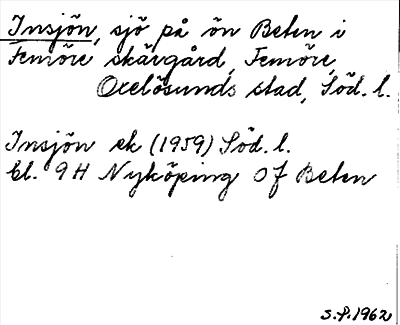 Insjön, sjö på ön Beten i
Femöre skärgård, Femöre,
Oxelösunds stad, Söd. l.
Insjön ek (1959) Söd. l.
bl. 9H Nyköping Of Beten
S.P. 1962